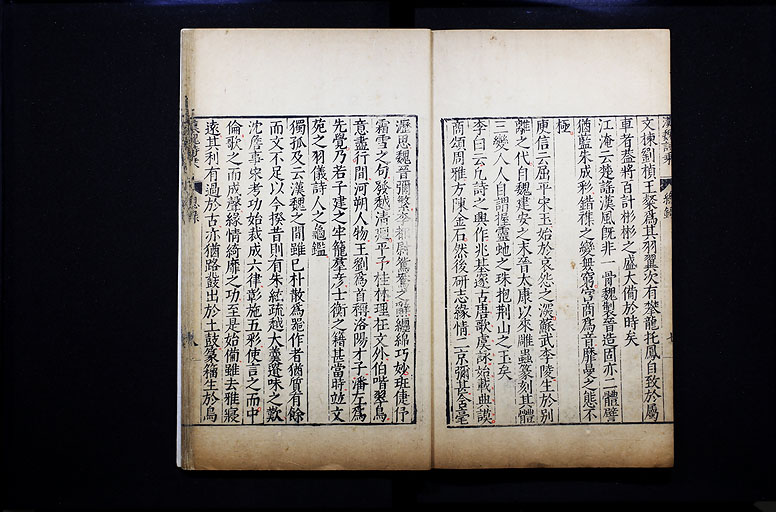 漢魏詩乘
總錄
文棟劉楨王粲爲其羽翼次有攀龍托鳳自致於屬
車者蓋將百計彬彬之盛大備於時矣
江淹云楚謠漢風既非一骨魏製晉造固亦二體譬
猶藍朱成彩錯雜之變無窮宮商爲音靡曼之態不
極
庾信云屈平宋玉始於哀怨之深蘇武李陵生於別
離之代自魏建安之末晉太康以來雕蟲篆刻其體
三變人人自謂握靈蛇之珠抱荆山之玉矣
李曰云凡詩之興作兆基邃古唐歌虞詠始載典謨
商頌周雅方陳金石然後研志緣情二京彌甚含毫
瀝思魏晉彌繁李都尉鴛鴦之辭纏綿巧妙班倢伃
霜雪之句發越清迥平子桂林理在文外伯喈翠鳥
意盡行間河朔人物王劉爲首稱洛陽才子潘左爲
先覺乃若子建之牢籠羣彥士衡之籍甚當時竝文
苑之羽儀詩人之龜鑑
獨孤及云漢魏之間雖已朴散爲器作者猶質有餘
而文不足以今揆昔則有朱絃疏越大羹遺味之歎
沈詹事宋考功始裁成六律彰施五彩使言之而中
倫歌之而成聲緣情綺靡之功至是始備雖去雅寖
遠其利有過於古亦猶路鼗出於土鼓篆籀生於鳥